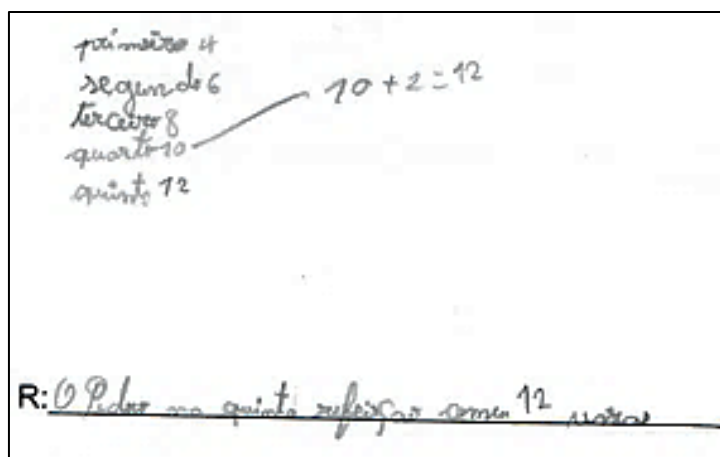 primeiro 4
segundo 6
terceiro 8
quarto 10
quinto 12
10 + 2 = 12
R: O Pedro na quinta refeição comeu 12